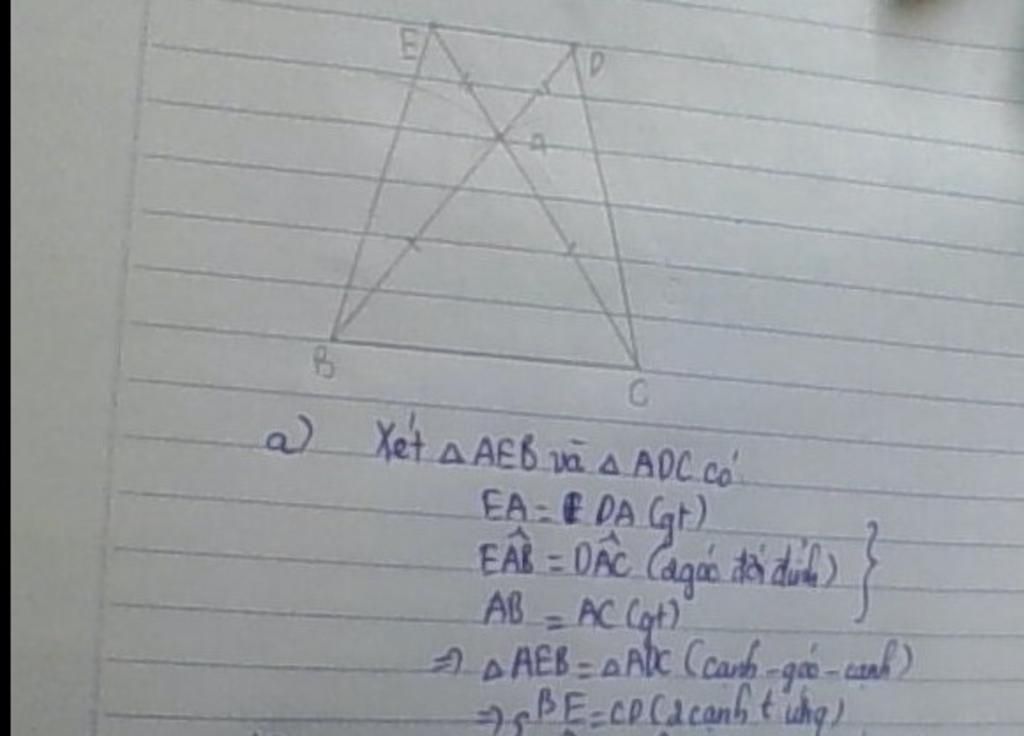 E
D
A
B
C
a) Xét △AEB và △ADC có
EA = DA (gt)
EÂB = DÂC (2 góc đối đỉnh)
AB = AC (gt)
⇒ △AEB = △ADC (cạnh-góc-cạnh)
⇒ BE = CD (2 cạnh t ứng)